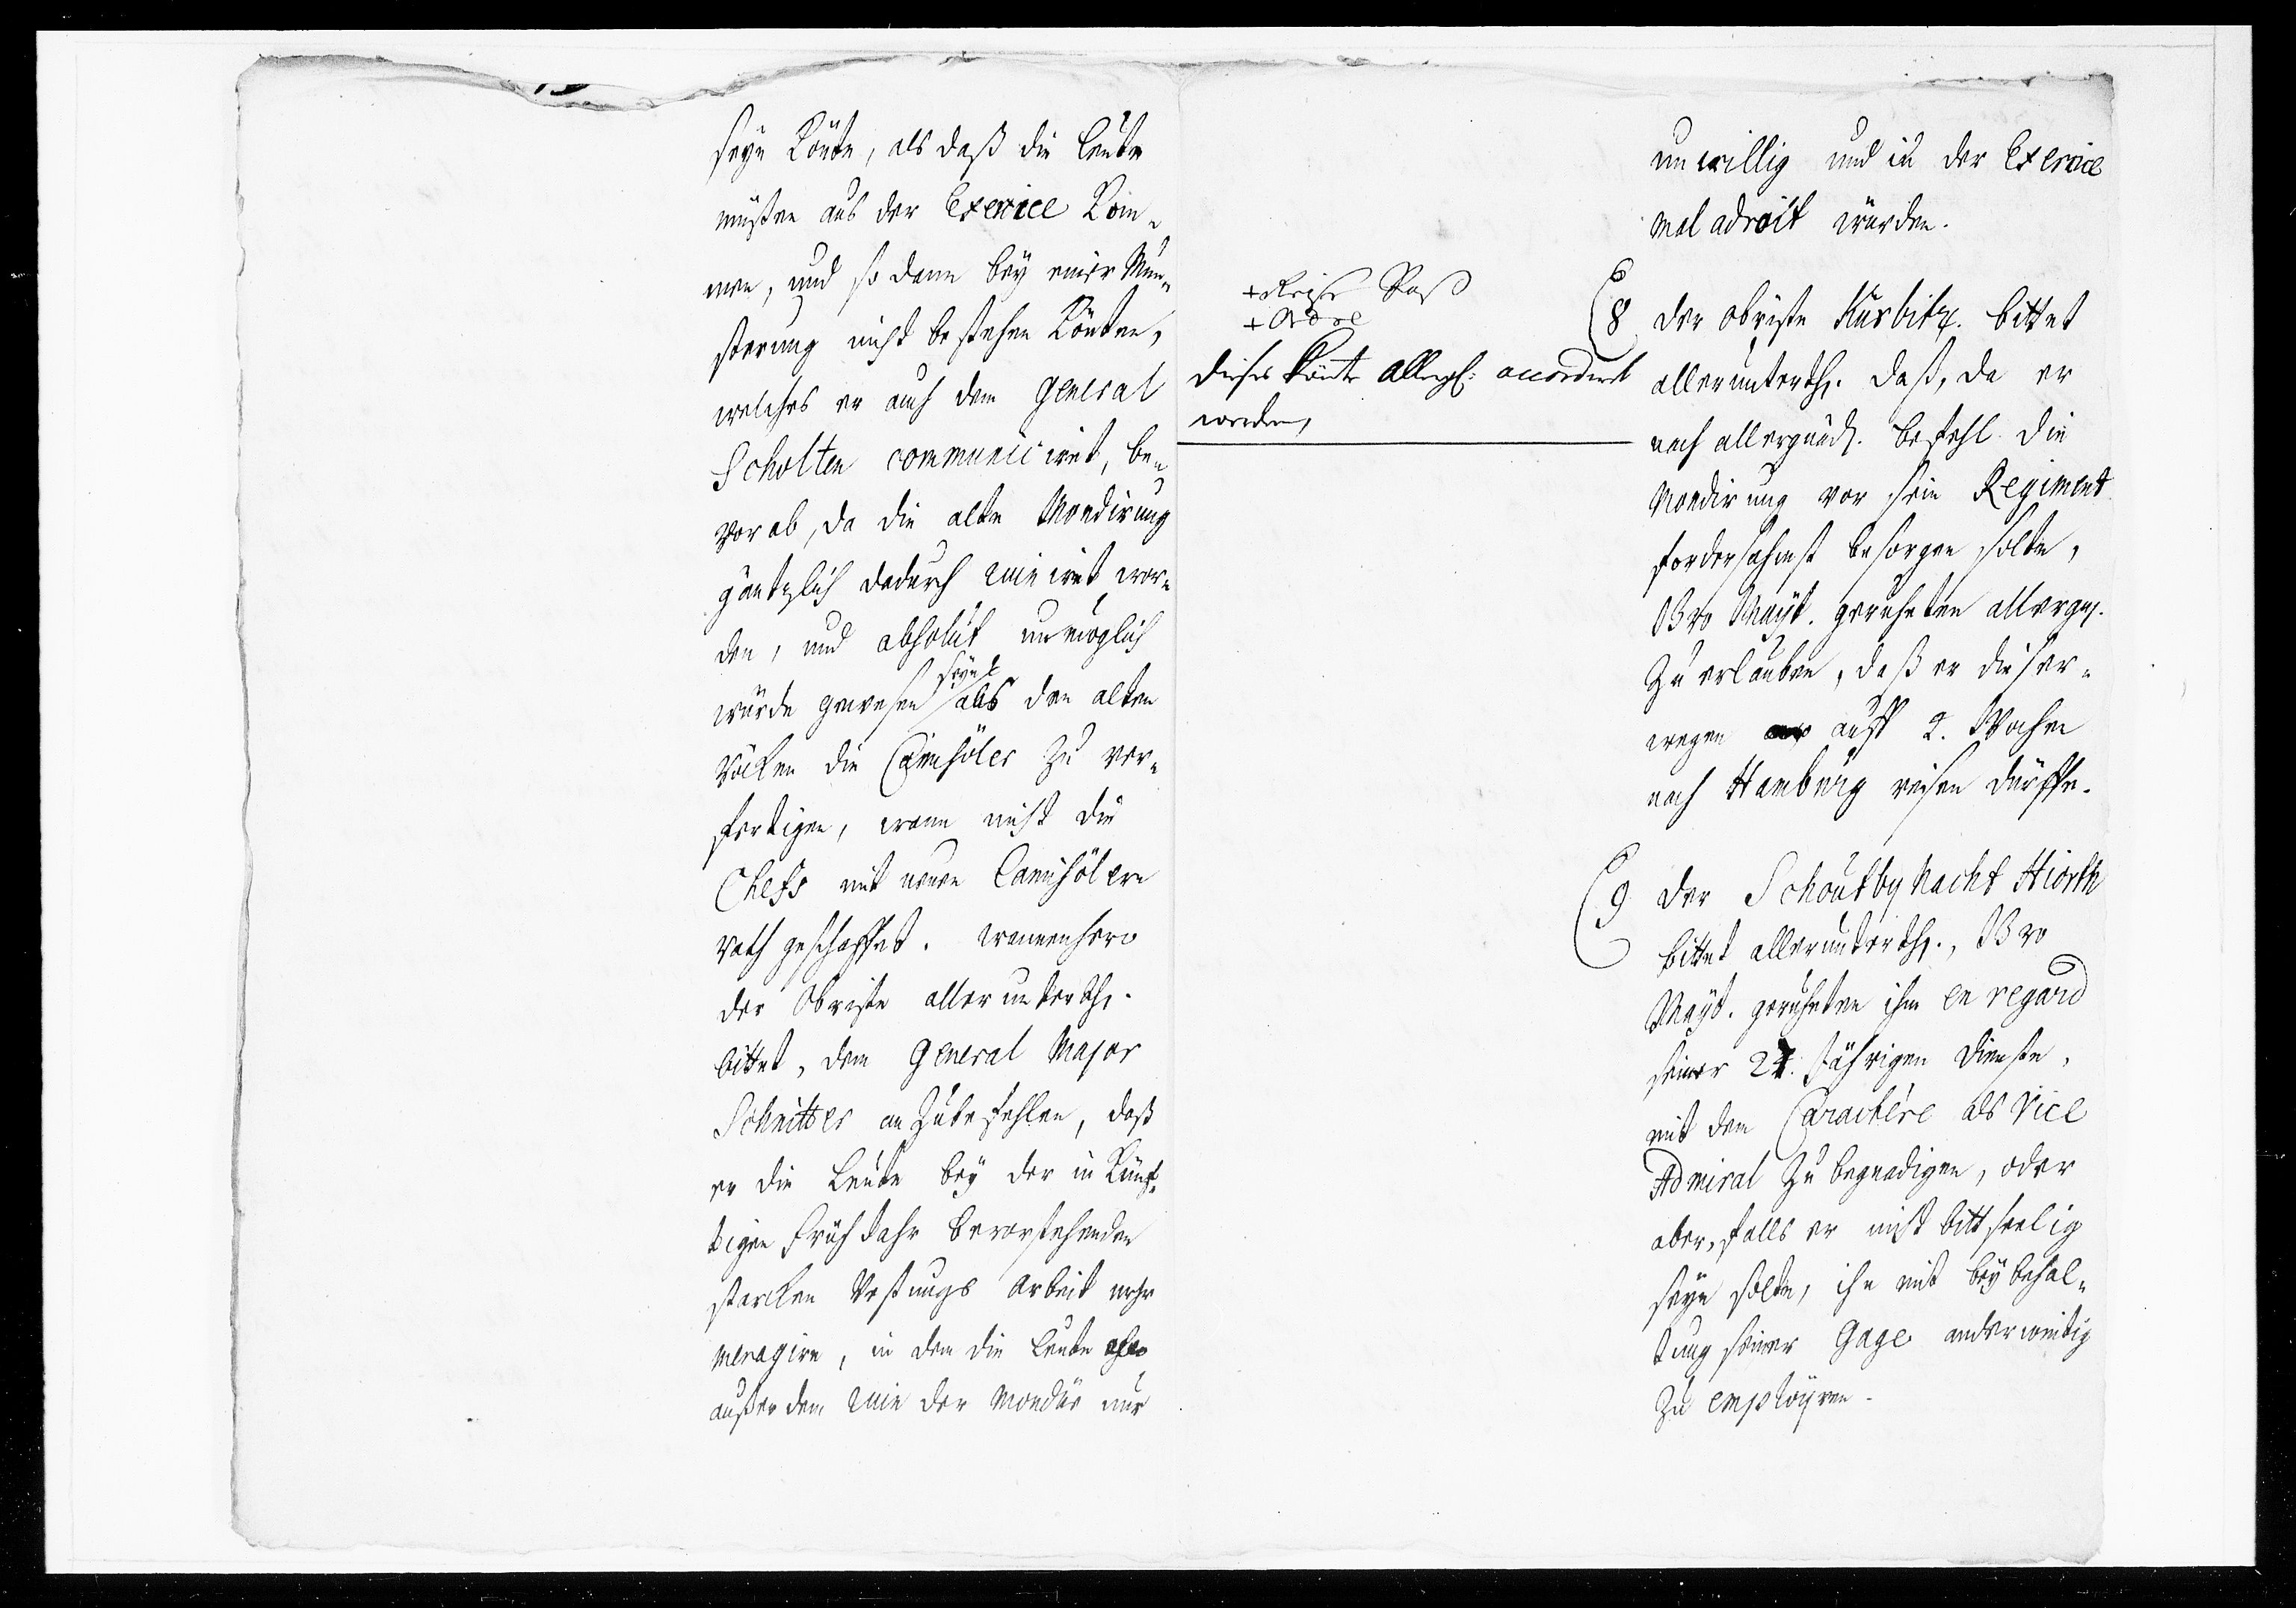 seyn könte, als daß die Leute
müßen aus der Exercice kom-
men, und so dann bey einer Mun-
sterung nicht bestehen könten,
welches er auch dem General
Scholten communiciret, be-
vorab, da die alte Mondirung
gäntzlich dadurch ruiniret wor-
den, und absolut unmöglich
würde gewesen seyn aus den alten
Röcken die Camisöler zu ver-
fertigen, wann nicht die
Chefs mit neuen Camisölern
rath geschaffet. wannenhero
der Obriste allerunterth.
bittet, dem General Major
Schnitter an zu befehlen, daß
er die Leute bey der in künf-
tigen Früh Jahr bevorstehenden
starcken Vestungs arbeit mehr
menagire, in dem die Leute
außer dem ruin der Mondur nur
+ Reise Paß
+ Ordre
dieses könte allergn: accordirt
werden,
unwillig und in der Exercice
mal adroit würden.
8 der Obriste Kürbitz. bittet
allerunterth. daß, da er
nach allergnäd. Befehl die
Mondirung vor sein Regiment
fordersahmst besorgen solte,
Ew Mayt. geruheten allergn.
zu erlauben, daß er dieser-
wegen auff 2. Wochen
nach Hamburg reisen dürffe.
9 der Schoutbynacht Hiorth
bittet allerunterth., Ew
Mayt. geruheten ihm en regard
seiner 27. Jährigen Dienste,
mit dem Caractère als Vice
Admiral zu begnadigen, oder
aber, falls er nicht bittseelig
seyn solte, ihn mit beybehal-
tung seiner Gage anderweitig
zu employren.